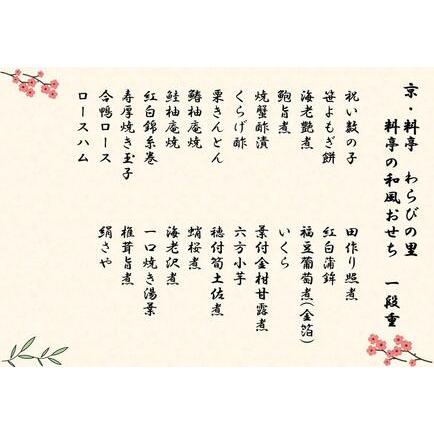 京・料亭 わらびの里
料亭の和風おせち 一段重
祝い数の子
笹よもぎ餅
海老艶煮
鮑旨煮
焼蟹酢漬
くらげ酢
栗きんとん
鰆柚庵焼
鮭柚庵焼
紅白錦糸巻
寿厚焼き玉子
合鴨ロース
ロースハム
田作り照煮
紅白蒲鉾
福豆葡萄煮(金箔)
いくら
葉付金柑甘露煮
六方小芋
穂付筍土佐煮
蛸桜煮
海老沢煮
一口焼き湯葉
椎茸旨煮
絹さや